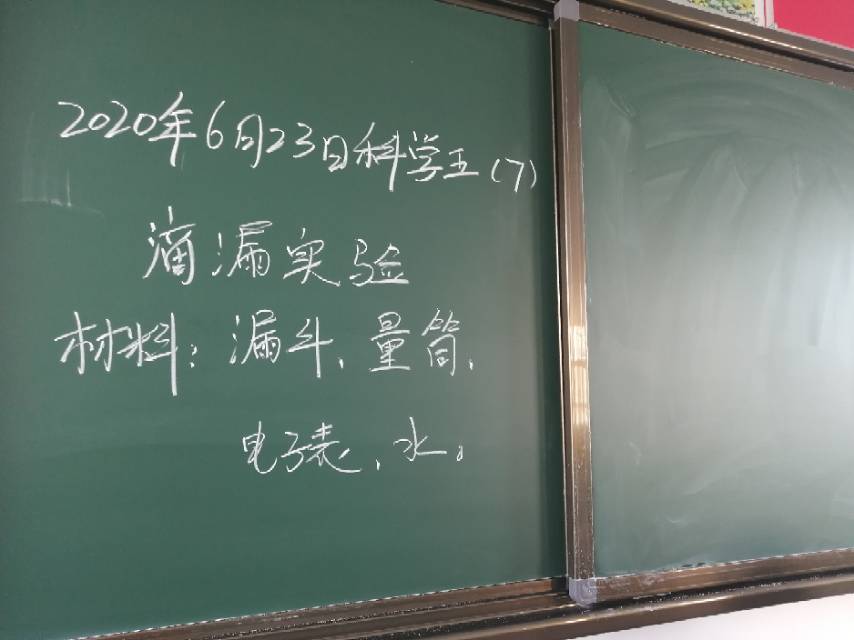 2020年6月23日科学五(7)
滴漏实验
材料:漏斗、量筒、
电子表、水。